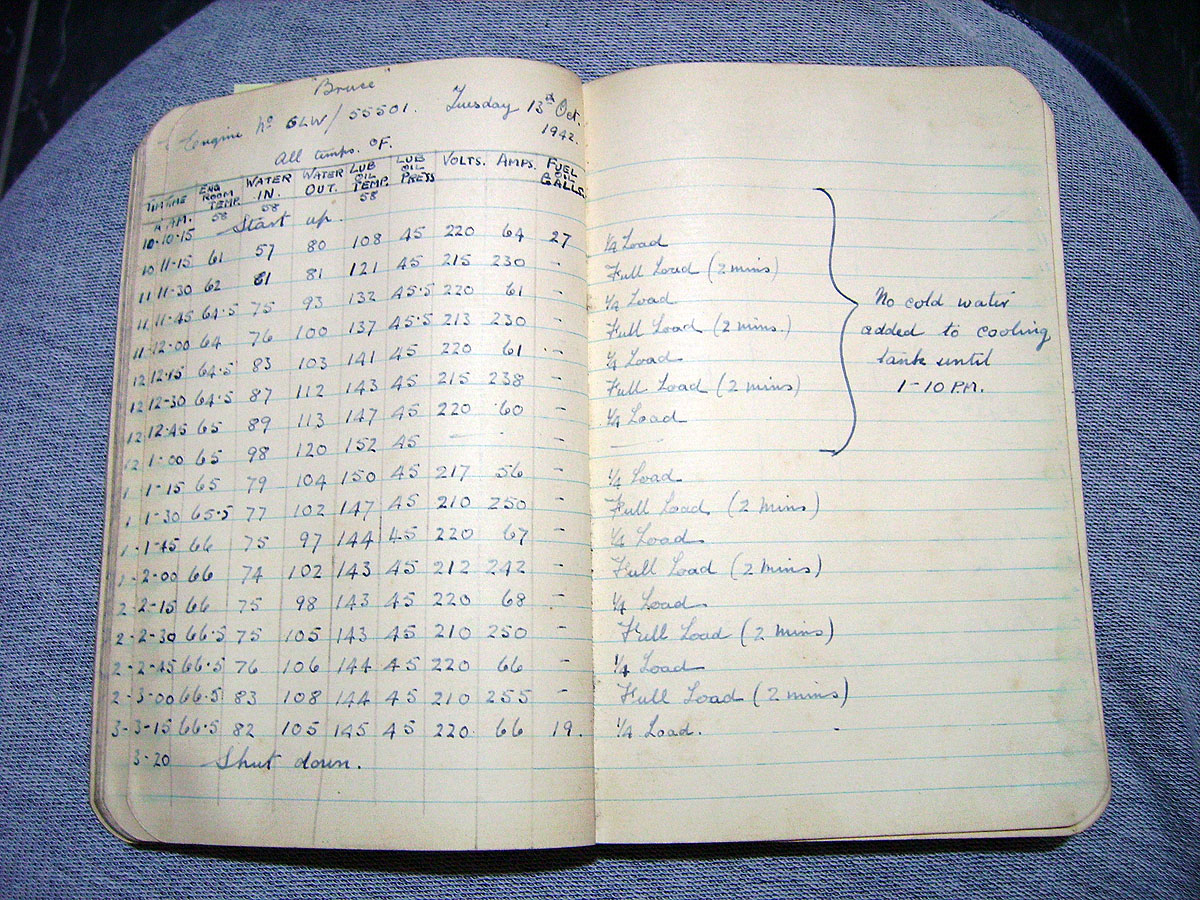 "Bruce"
Engine No 6LW/55501. Tuesday 13th Oct. 1942.
All temps. °F.
TIME ENG ROOM TEMP. WATER IN. WATER OUT. LUB OIL TEMP. LUB OIL PRESS VOLTS. AMPS. FUEL OIL GALLS.
A.M. 58 58 58
10-15 Start up.
11-15 61 57 80 108 45 220 64 27 1/4 Load
11-30 62 61 81 121 45 215 230 - Full Load (2 mins)
11-45 64·5 75 93 132 45·5 220 61 - 1/4 Load
12-00 64 76 100 137 45·5 213 230 - Full Load (2 mins.)
12-15 64·5 83 103 141 45 220 61 - 1/4 Load
12-30 64·5 87 112 143 45 215 238 - Full Load (2 mins)
12-45 65 89 113 147 45 220 60 - 1/4 Load
1-00 65 98 120 152 45 — - - —
No cold water
added to cooling
tank until
1-10 P.M.
1-15 65 79 104 150 45 217 56 - 1/4 Load
1-30 65·5 77 102 147 45 210 250 - Full Load (2 mins)
1-45 66 75 97 144 45 220 67 - 1/4 Load
2-00 66 74 102 143 45 212 242 - Full Load (2 mins)
2-15 66 75 98 143 45 220 68 - 1/4 Load
2-30 66·5 75 105 143 45 210 250 - Full Load (2 mins)
2-45 66·5 76 106 144 45 220 66 - 1/4 Load
3-00 66·5 83 108 144 45 210 255 - Full Load (2 mins)
3-15 66·5 82 105 145 45 220 66 19. 1/4 Load.
3-20 Shut down.